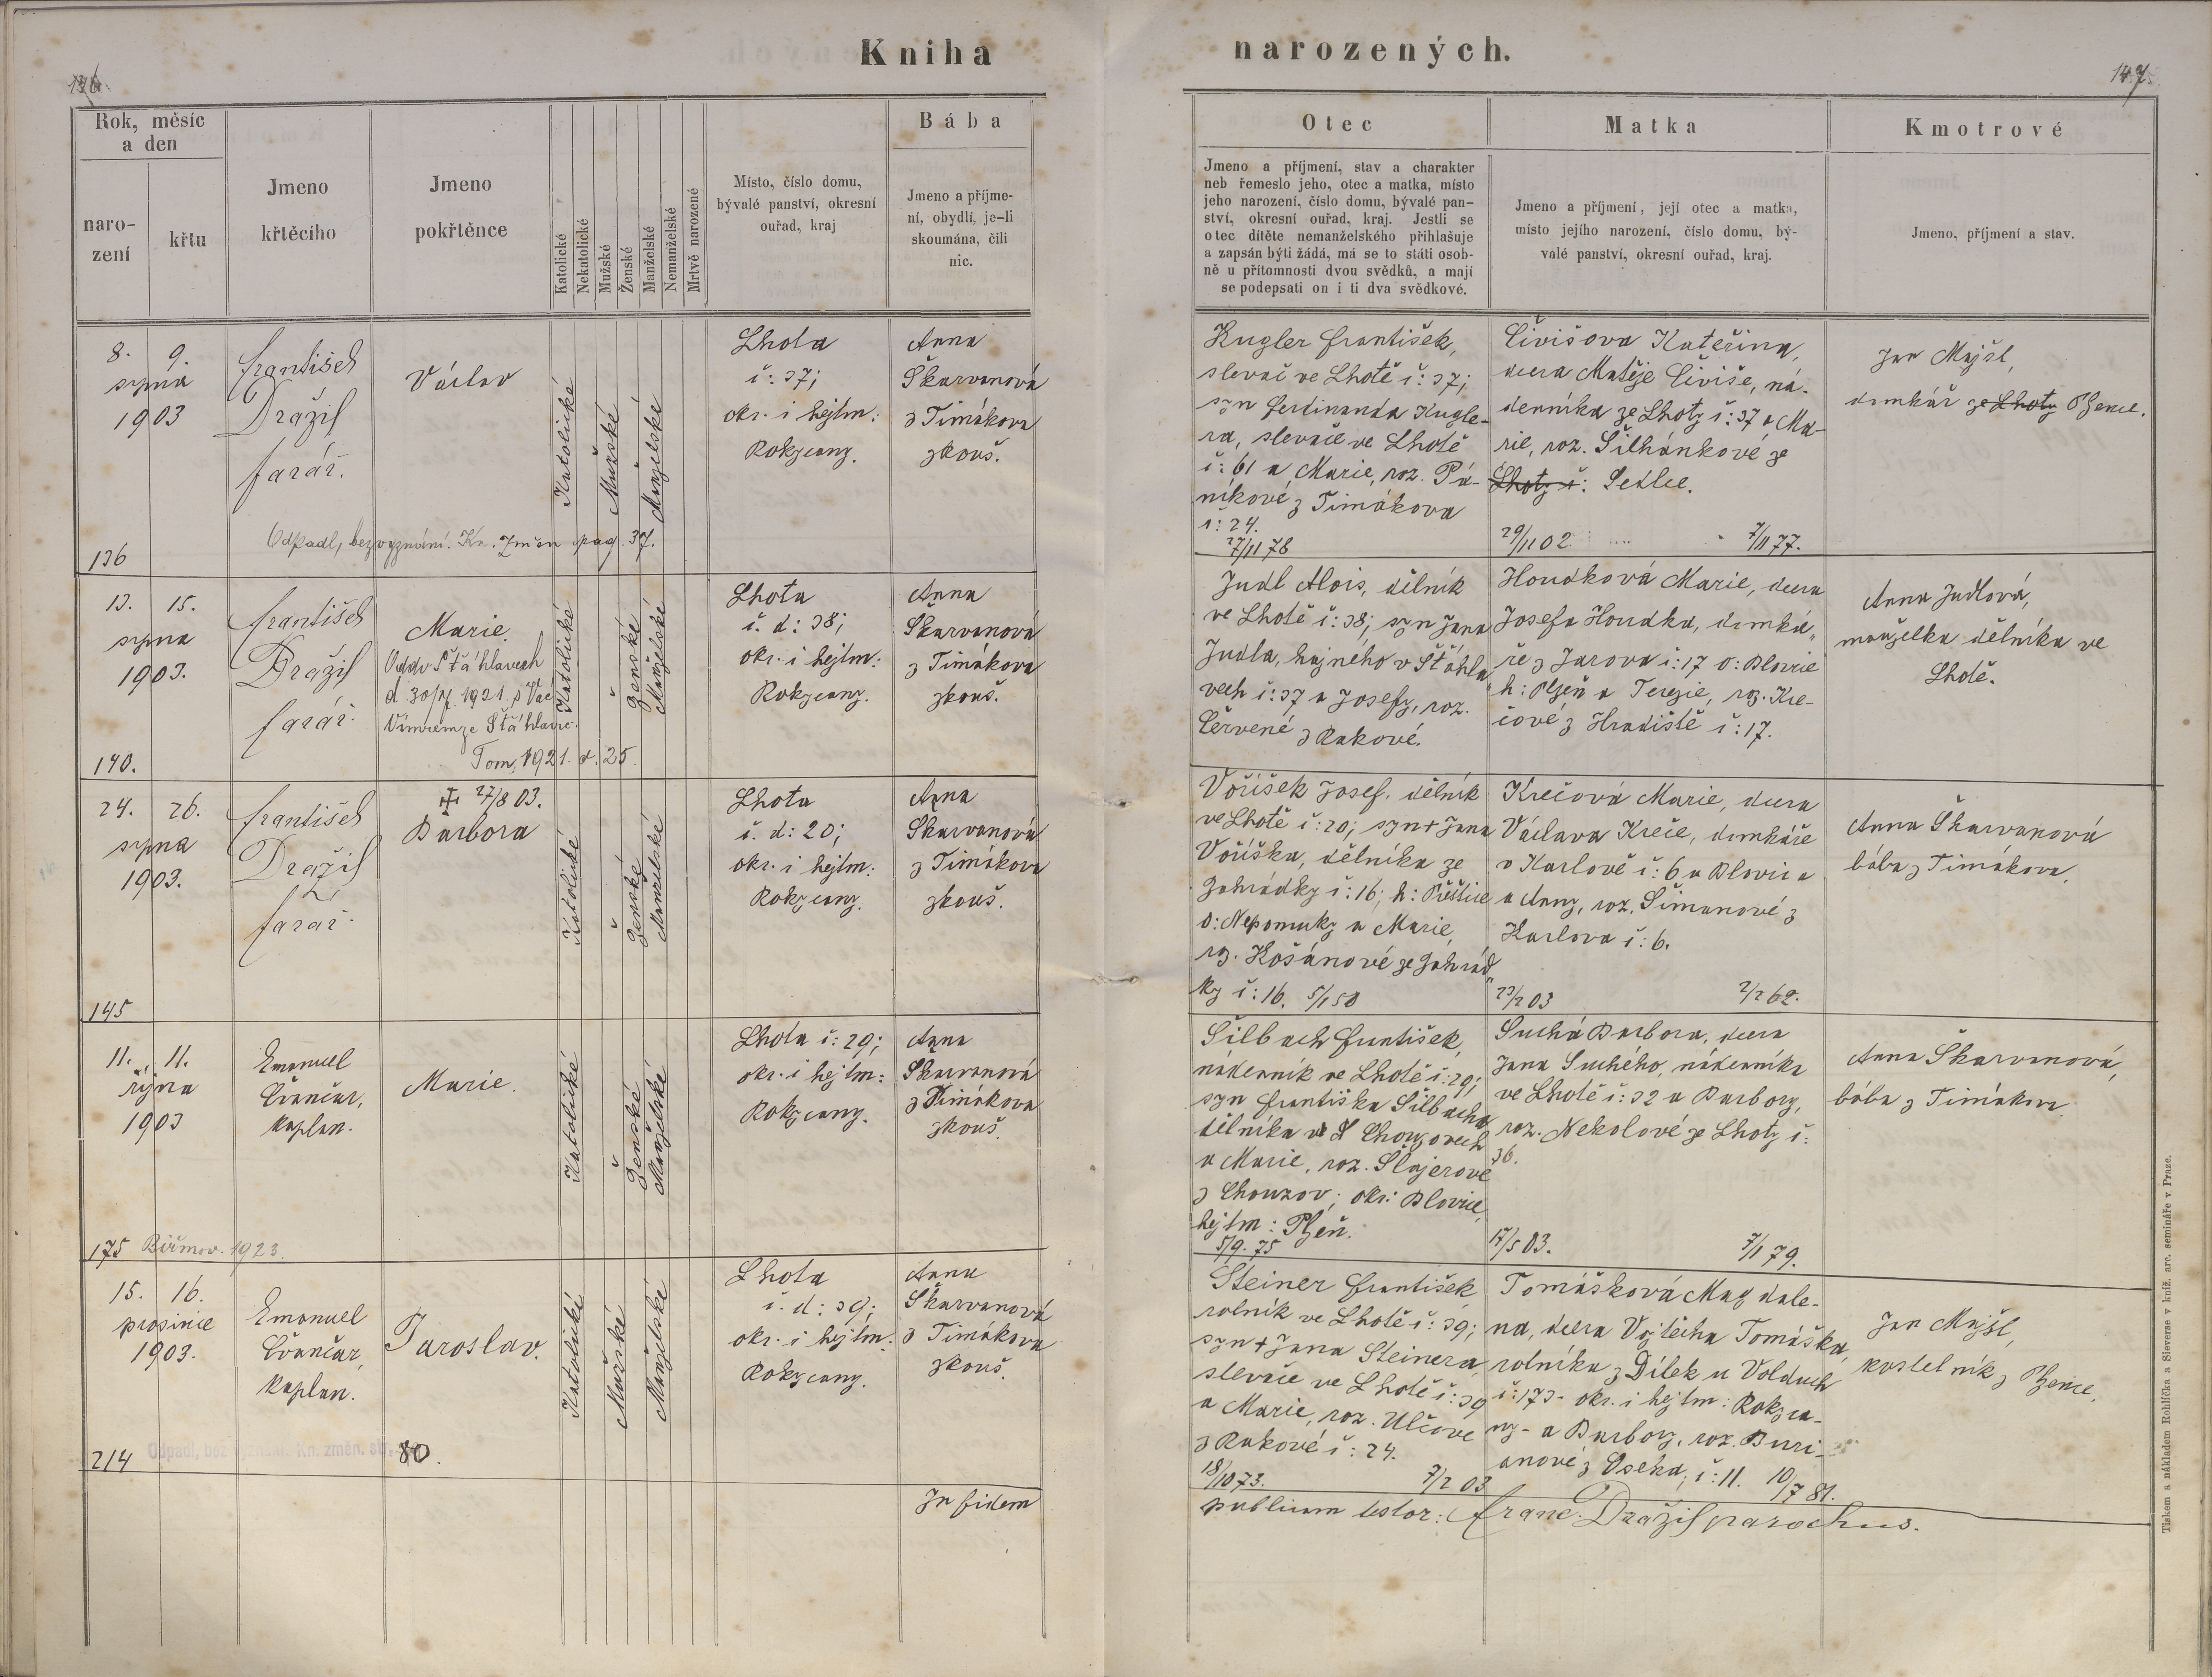 Kniha narozených.
136.
147.
Rok, měsíc
a den
naro-
zení
křtu
Jmeno
křtěcího
Jmeno
pokřtěnce
Katolické
Nekatolické
Mužské
Ženské
Manželské
Nemanželské
Mrtvě narozené
Místo, číslo domu,
bývalé panství, okresní
ouřad, kraj
Bába
Jmeno a příjme-
ní, obydlí, je-li
skoumána, čili
nic.
Otec
Jmeno a příjmení, stav a charakter
neb řemeslo jeho, otec a matka, místo
jeho narození, číslo domu, bývalé pan-
ství, okresní ouřad, kraj. Jestli se
otec dítěte nemanželského přihlašuje
a zapsán býti žádá, má se to státi osob-
ně u přítomnosti dvou svědků, a mají
se podepsati on i ti dva svědkové.
Matka
Jmeno a příjmení, její otec a matka,
místo jejího narození, číslo domu, bý-
valé panství, okresní ouřad, kraj.
Kmotrové
Jmeno, příjmení a stav.
8. 9.
srpna
1903
František
Dražil
farář.
Václav
Katolické
Mužské
Manželské
Lhota
č: 37;
okr. i hejtm:
Rokycany.
Anna
Škarvanová
z Timákova
zkouš.
Kugler František,
slevač ve Lhotě č: 37;
syn Ferdinanda Kugle-
ra, slevače ve Lhotě
č: 61 a Marie, roz. Pá-
níkové z Timákova
č: 24.
27/11 78
Čivišova Kateřina,
dcera Matěje Čiviše, ná-
denníka ze Lhoty č: 37 a Ma-
rie, roz. Šilhánkové ze
Lhoty č: Sedlce.
29/11 02
7/11 77.
Jan Majšl,
domkář ze Lhoty Plzence.
Odpadl, bez vyznání. Kn. změn pag. 37.
136
13. 15.
srpna
1903.
František
Dražil
farář.
Marie.
Odd. v Šťáhlavech
d. 30/4. 1921. s Vác.
Vimrem ze Šťáhlavic.
Tom. 1921. d. 25.
Katolické
Ženské
Manželské
Lhota
č. d: 38;
okr. i hejtm:
Rokycany.
Anna
Škarvanová
z Timákova
zkouš.
Judl Alois, dělník
ve Lhotě č: 38; syn Jana
Judla, hajného v Šťáhla-
vech č: 37 a Josefy, roz.
Červené z Rakové.
Houdková Marie, dcera
Josefa Houdka, domká-
ře z Jarova č: 17 o: Blovice
h: Plzeň a Terezie, roz. Kre-
čové z Hradiště č: 17.
Anna Judlová,
manželka dělníka ve
Lhotě.
140.
24. 26.
srpna
1903.
František
Dražil
farář.
✠ 27/8 03.
Barbora
Katolické
Ženské
Manželské
Lhota
č. d: 20;
okr. i hejtm:
Rokycany.
Anna
Škarvanová
z Timákova
zkouš.
Voříšek Josef, dělník
ve Lhotě č: 20; syn + Jana
Voříška, dělníka ze
Zahrádky č: 16; h: Přeštice
o: Nepomuky a Marie,
roz. Košánové ze Zahrád-
ky č: 16. 5/1 58
Krečová Marie, dcera
Václava Kreče, domkáře
v Karlově č: 6 u Blovic a
a Anny, roz. Šimanové z
Karlova č: 6.
23/2 03
2/2 62.
Anna Škarvanová
bába z Timákova.
145
11. 11.
října
1903
Emanuel
Čvančar,
kaplan.
Marie.
Katolické
Ženské
Manželské
Lhota č: 29;
okr. i hejtm:
Rokycany.
Anna
Škarvanová
z Timákova
zkouš.
Šilbach František,
nádenník ve Lhotě č: 29;
syn Františka Šilbacha,
dělníka v Chouzovech
a Marie, roz. Šlajerové
z Chouzov; okr: Blovice,
hejtm: Plzeň.
5/9. 75
Suchá Barbora, dcera
Jana Suchého, nádenníka
ve Lhotě č: 32 a Barbory,
roz. Nekolové ze Lhoty č:
36.
17/5 03.
7/1 79.
Anna Škarvanová,
bába z Timákova.
175 Biřmov. 1923.
15. 16.
prosince
1903.
Emanuel
Čvančar,
kaplan.
Jaroslav.
Katolické
Mužské
Manželské
Lhota
č. d: 39;
okr. i hejtm:
Rokycany.
Anna
Škarvanová
z Timákova
zkouš.
Steiner František
rolník ve Lhotě č: 39;
syn + Jana Steinera,
slevače ve Lhotě č: 39
a Marie, roz. Ulčove
z Rakové č: 24.
18/10 73.
7/2 03
Tomášková Magdale-
na, dcera Vojtěcha Tomáška,
rolníka z Dílek u Volduch
č: 173- okr. i hejtm: Rokyca-
ny- a Barbory, roz. Buri-
anové z Oseka, č: 11. 10/7 81.
Jan Majšl,
kostelník z Plzence.
214 Odpadl, bez vyznání. Kn. změn. str. 80.
In fidem
publicam testor: Franc. Dražil parochus.
Tiskem a nákladem Rohlíčka a Sieverse v kníž. arc. semináře v Praze.